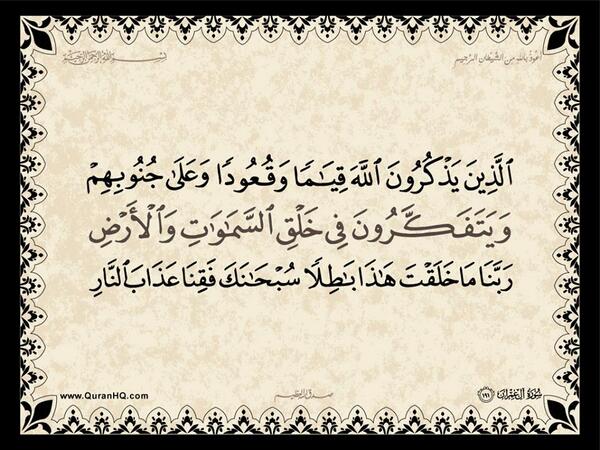 أعوذ بالله من الشيطان الرجيم
بسم الله الرحمن الرحيم
ٱلَّذِينَ يَذْكُرُونَ ٱللَّهَ قِيَـٰمًا وَقُعُودًا وَعَلَىٰ جُنُوبِهِمْ
وَيَتَفَكَّرُونَ فِى خَلْقِ ٱلسَّمَـٰوَٰتِ وَٱلْأَرْضِ
رَبَّنَا مَا خَلَقْتَ هَـٰذَا بَـٰطِلًا سُبْحَـٰنَكَ فَقِنَا عَذَابَ ٱلنَّارِ
سورة آل عمران ١٩١
صدق الله العظيم
www.QuranHQ.com